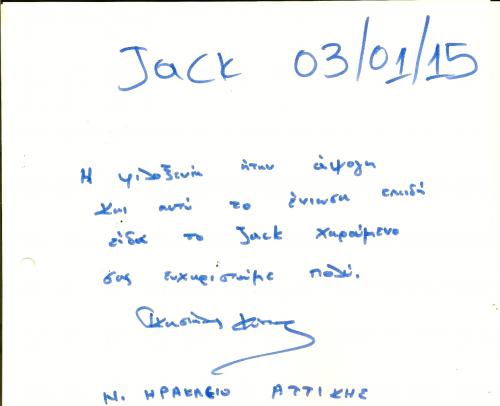 Jack 03/01/15
Η φιλοξενία ήταν άψογη
και αυτό το ένιωσα επειδή
είδα το Jack χαρούμενο
σας ευχαριστούμε πολύ.
Ν. ΗΡΑΚΛΕΙΟ ΑΤΤΙΚΗΣ